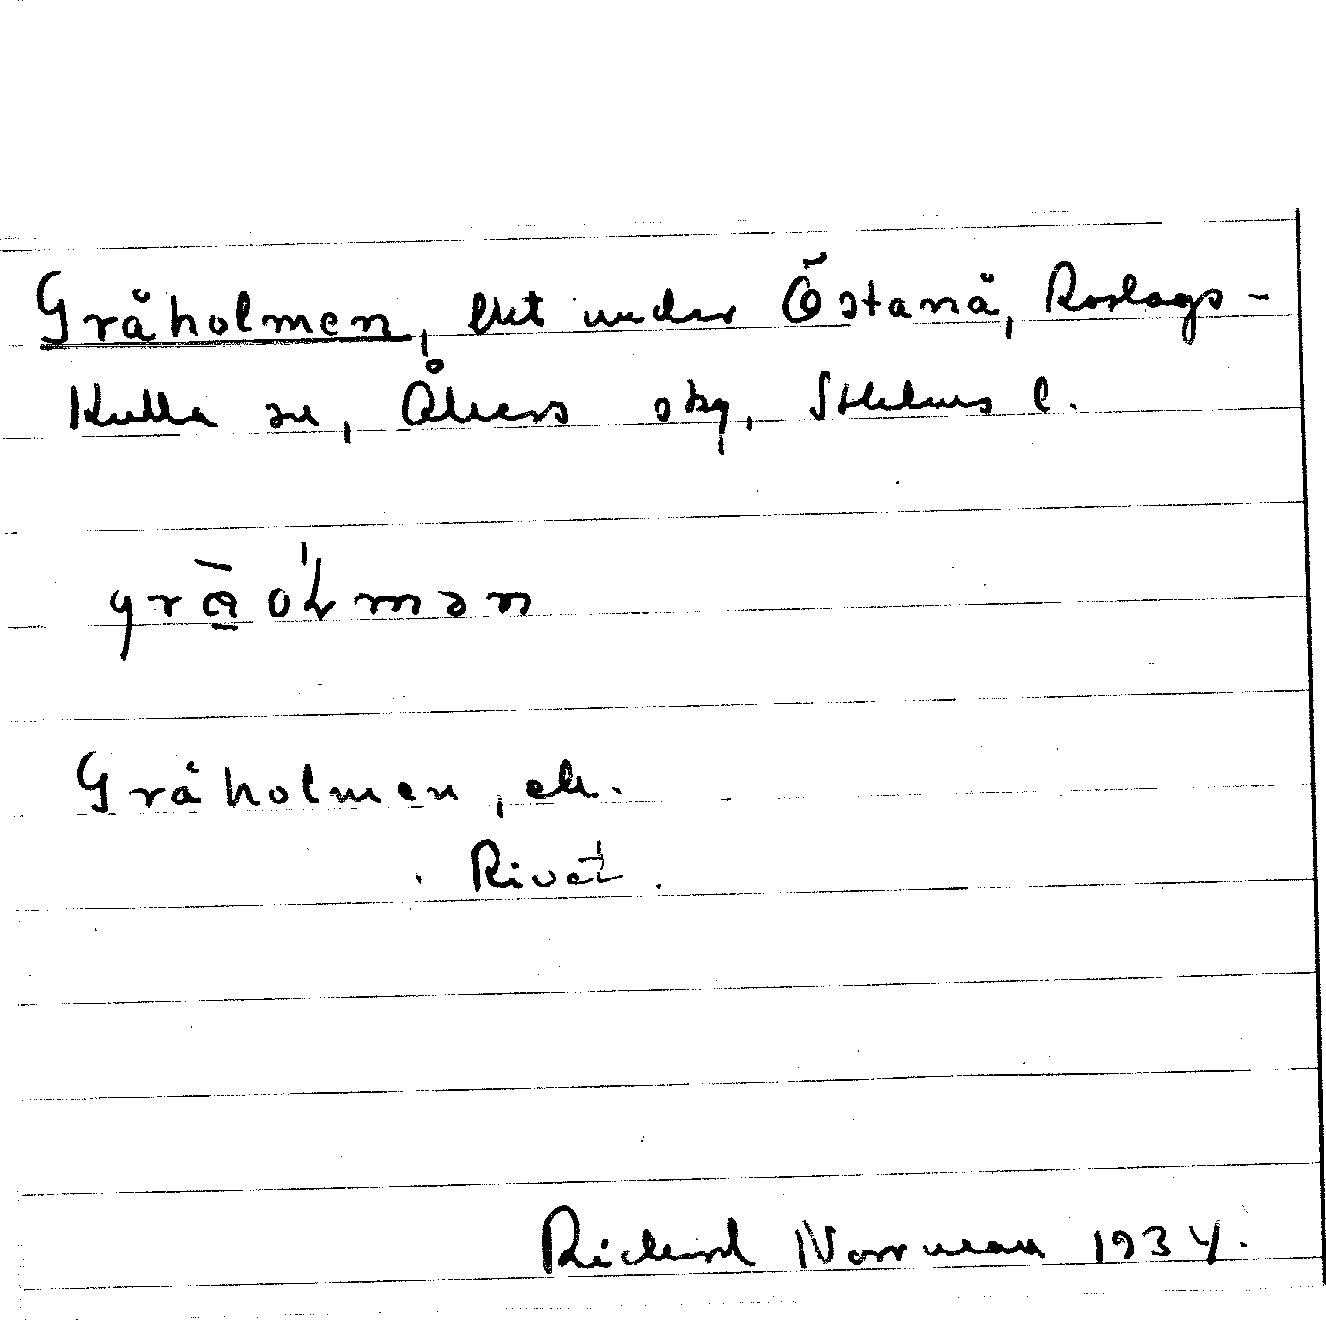 Gråholmen, lht under Östanå, Roslags-
Kulla sn, Åkers skg, Sthlms l.
Gråholmen,
Rivet.
Richard Norrman 1934.